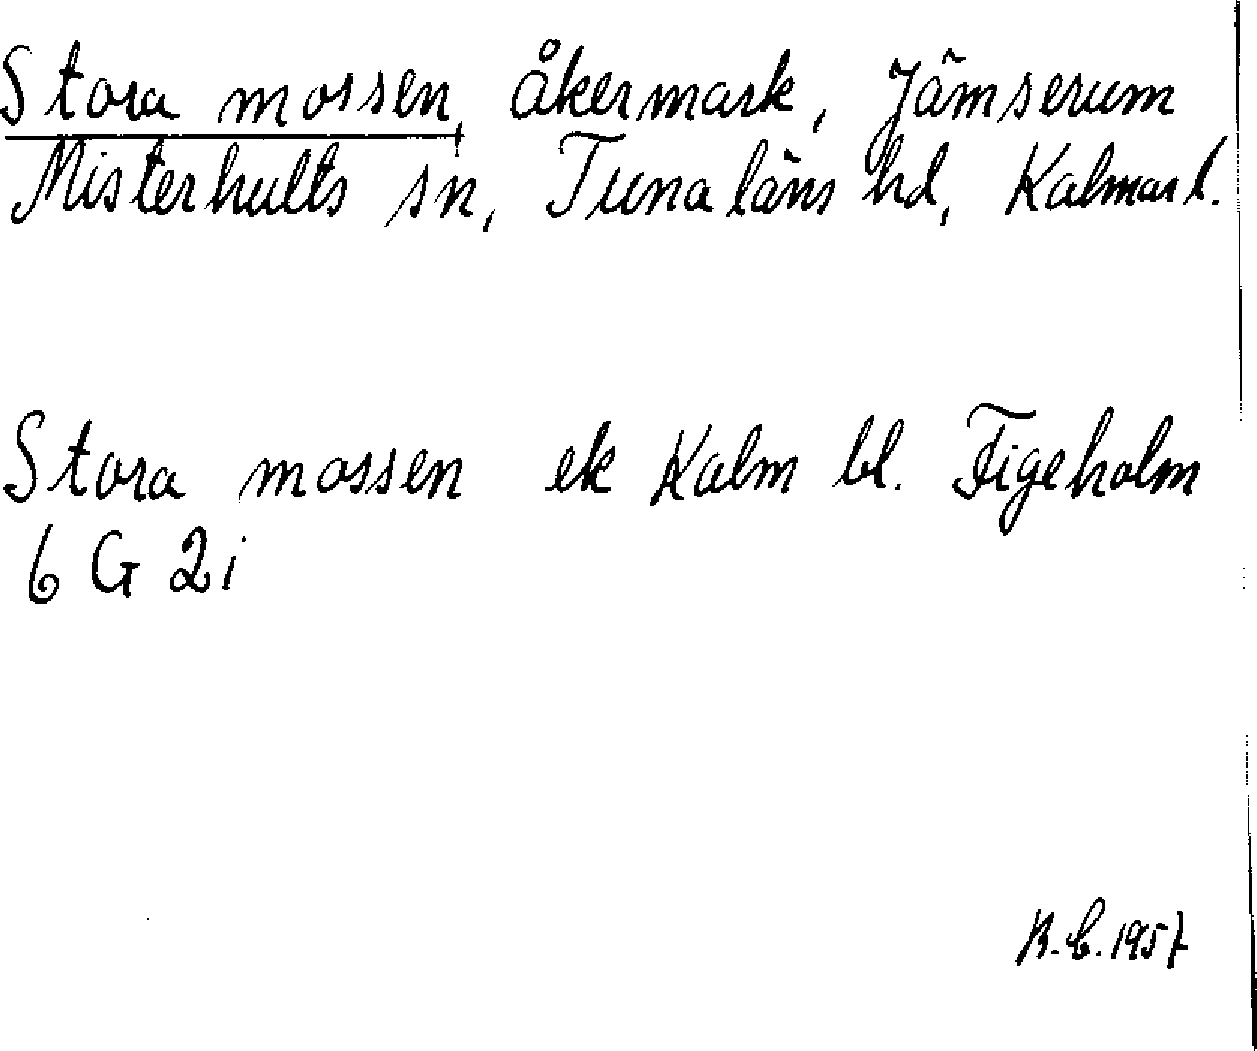 Stora mossen, åkermark, Jämserum
Misterhults sn, Tunaläns hd, Kalmar l.
Stora mossen ek Kalm bl. Figeholm
6 G 2i
B.C. 1957